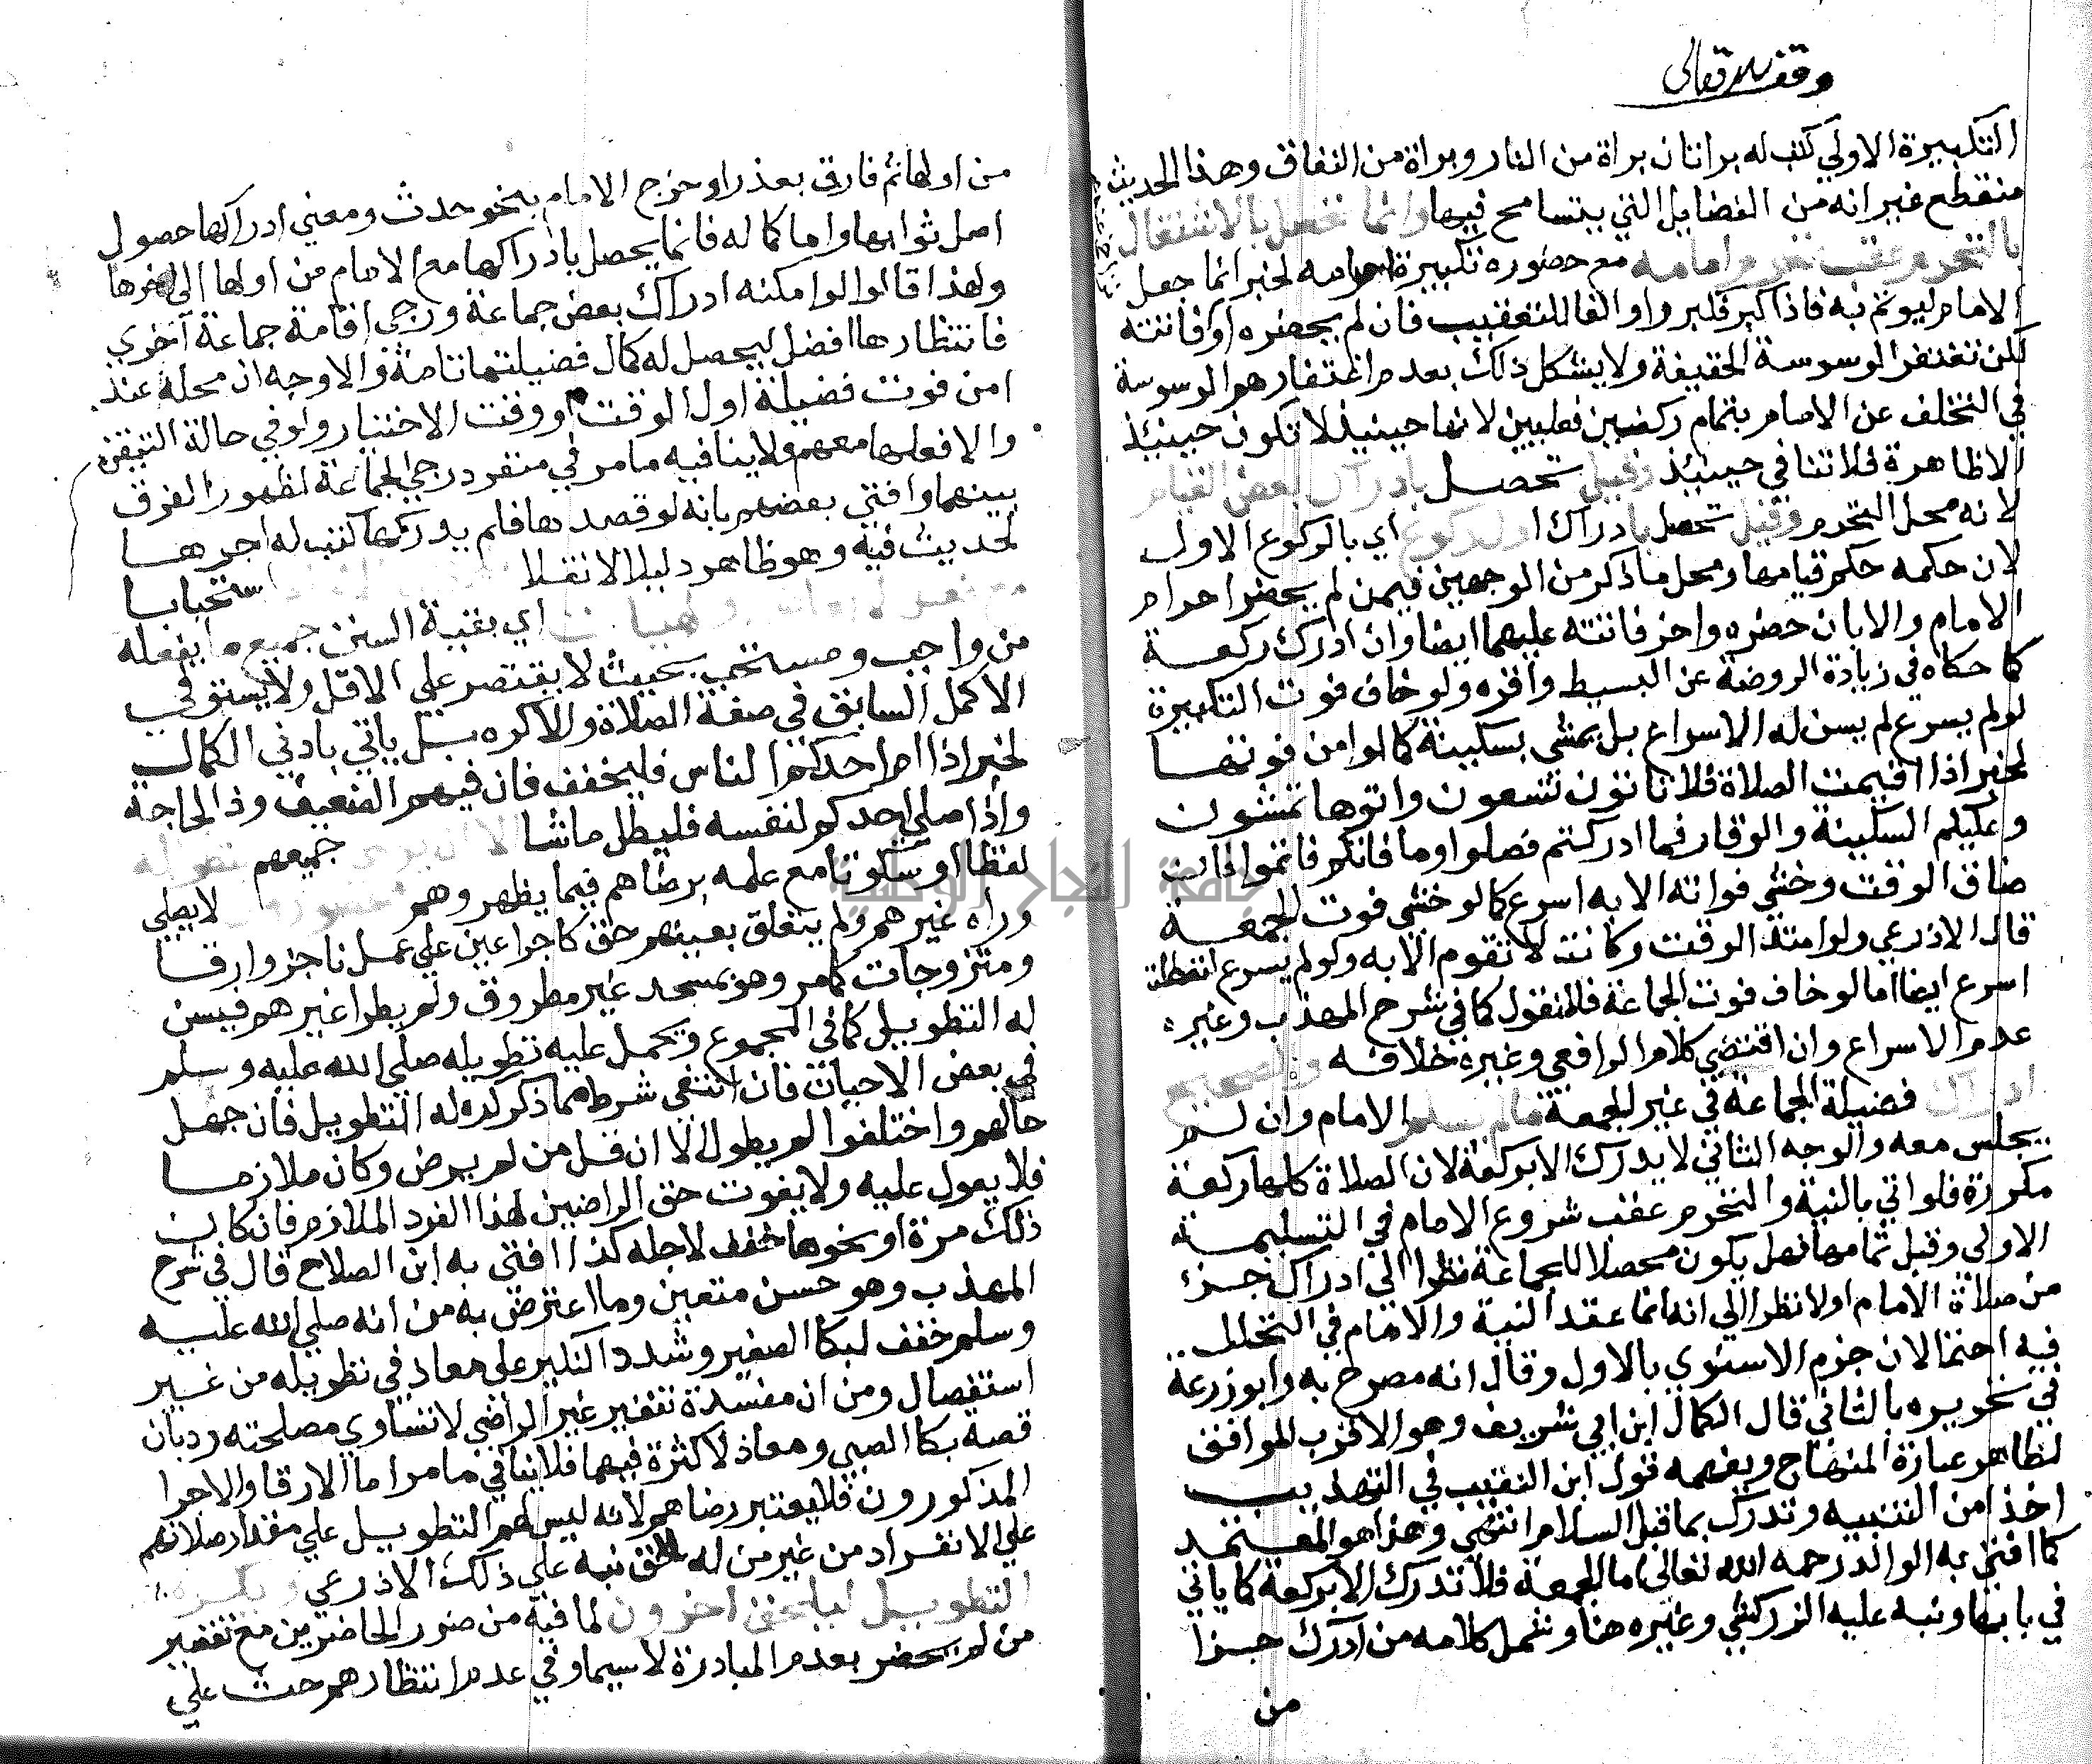 وقف لله تعالى
التكبيرة الاولي كتب له براتان براة من النار وبراة من النفاق وهذا الحديث
منقطع غير انه من الفضايل التي يتسامح فيها وانما تحصل بالاشتغال
بالتحرم عقب تحرم امامه مع حضوره تكبيرة احرامه لخبر انما جعل
الامام ليوتم به فاذا كبر فكبروا والفا للتعقيب فان لم يحضره او فاتته
لكن تغتفر الوسوسة الخفيفة ولا يشكل ذلك بعدم اغتفارهم الوسوسة
في التخلف عن الامام بتمام ركنين فعليين لانها حينيذ لا تكون حينيذ
الا ظاهرة فلا تنافي حينيذ وقيل تحصل بادراك بعض القيام
لانه محل التحرم وقيل تحصل بادراك اول ركوع اي بالركوع الاول
لان حكمه حكم قيامها ومحل ما ذكر من الوجهين فيمن لم يحضر احرام
الامام والا بان حضره واخر فاتته عليهما ايضا وان ادرك ركعة
كما حكاه في زيادة الروضة عن البسيط واقره ولو خاف فوت التكبيرة
لو لم يسرع لم يسن له الاسراع بل يمشي بسكينة كما لو امن فوتها
لخبر اذا اقيمت الصلاة فلا تاتون تسعون واتوها تمشون
وعليكم السكينة والوقار فما ادركتم فصلوا وما فاتكم فاتموا اذان
ضاق الوقت وخشي فواته الا به اسرع كما لو خشي فوت الجمعة
قال الاذرعي ولو امتد الوقت وكانت لا تقوم الا به ولو لم يسرع لتعطلت
اسرع ايضا اما لو خاف فوت الجماعة فالمنقول كما في شرح المهذب وغيره
عدم الاسراع وان اقتضي كلام الرافعي وغيره خلافه والصحيح
ادراك فضيلة الجماعة في غير الجمعة ما لم يسلم الامام وان لم
يجلس معه والوجه الثاني لا يدرك الا بركعة لان الصلاة كلها ركعة
مكررة فلو اتي بالنية والتحرم عقب شروع الامام في التسليمة
الاولي وقبل تمامها فهل يكون محصلا للجماعة نظرا الي ادراك جزء
من صلاة الامام او لا نظرا الي انه انما عقد النية والامام في التحلل
فيه احتمالان جزم الاسنوي بالاول وقال انه مصرح به وابو زرعة
في تحريره بالثاني قال الكمال ابن ابي شريف وهو الاقرب الموافق
لظاهر عبارة المنهاج ويفهمه قول ابن النقيب في التهذيب
اخذا من التنبيه وتدرك بما قبل السلام انتهي وهذا هو المعتمد
كما افتي به الوالد رحمه الله تعالي اما الجمعة فلا تدرك الا بركعة كما ياتي
في بابها ونبه عليه الزركشي وغيره هنا وشمل كلامه من ادرك جزا
من
من اولها ثم فارق بعذر او خرج الامام بنحو حدث ومعني ادراكها حصول
اصل ثوابها واما كماله فانما يحصل بادراكها مع الامام من اولها الي اخرها
ولهذا قالوا لو امكنه ادراك بعض جماعة ورجي اقامة جماعة اخري
فانتظارها افضل ليحصل له كمال فضيلتها تامة والاوجه ان محله عند
امن فوت فضيلة اول الوقت او وقت الاختيار ولو في حالة التيقن
والا فعلها معهم ولا ينافيه ما مر في منفرد رجي الجماعة لظهور الفرق
بينهما وافتي بعضهم بانه لو قصدها فلم يدركها كتب له اجرها
لحديث فيه وهو ظاهر دليلا لا نقلا
ستحبابا
مع فعل الابعاض والهيات اي بقية السنن جميع ما يفعله
من واجب ومستحب بحيث لا يقتصر علي الاقل ولا يستوفي
الاكمل السابق في صفة الصلاة والا كره بل ياتي بادني الكمال
لخبر اذا ام احدكم الناس فليخفف فان فيهم الضعيف وذا الحاجة
واذا صلي احدكم لنفسه فليطل ما شا الا ان يرضي بتطويله
جميعهم
لفظا او سكوتا مع علمه برضاهم فيما يظهر وهم محصورون لا يصلي
وراه غيرهم ولم يتعلق بعينهم حق كاجرا عين علي عمل ناجز وارقا
ومتزوجات كما مر وهو بمسجد غير مطروق ولم يطرا غيرهم فيسن
له التطويل كما في المجموع وتحمل عليه تطويله صلي الله عليه وسلم
في بعض الاحيان فان انتفي شرط مما ذكر كره له التطويل فان جهل
حالهم واختلفوا لم يطول الا ان قل من لم يرض وكان ملازما
فلا يعول عليه ولا يفوت حق الراضين لهذا الفرد الملازم فان كان
ذلك مرة او نحوها خفف لاجله كذا افتي به ابن الصلاح قال في شرح
المهذب وهو حسن متعين وما اعترض به من انه صلي الله عليه
وسلم خفف لبكا الصغير وشدد النكير علي معاذ في تطويله من غير
استفصال ومن ان مفسدة تنفير غير الراضي لا تساوي مصلحته رد بان
قصة بكا الصبي ومعاذ لا كثرة فيهما فلا ينافي ما مر اما الارقا والاجرا
المذكورون فلا يعتبر رضاهم لانه ليس لهم التطويل علي مقدار صلاتهم
علي الانفراد من غير من له الحق نبه علي ذلك الاذرعي ويكره
التطويل ليلحق اخرون لما فيه من ضرر الحاضرين مع تقصير
من لم يحضر بعدم المبادرة لا سيما وفي عدم انتظارهم حث علي
جامعة النجاح الوطنية